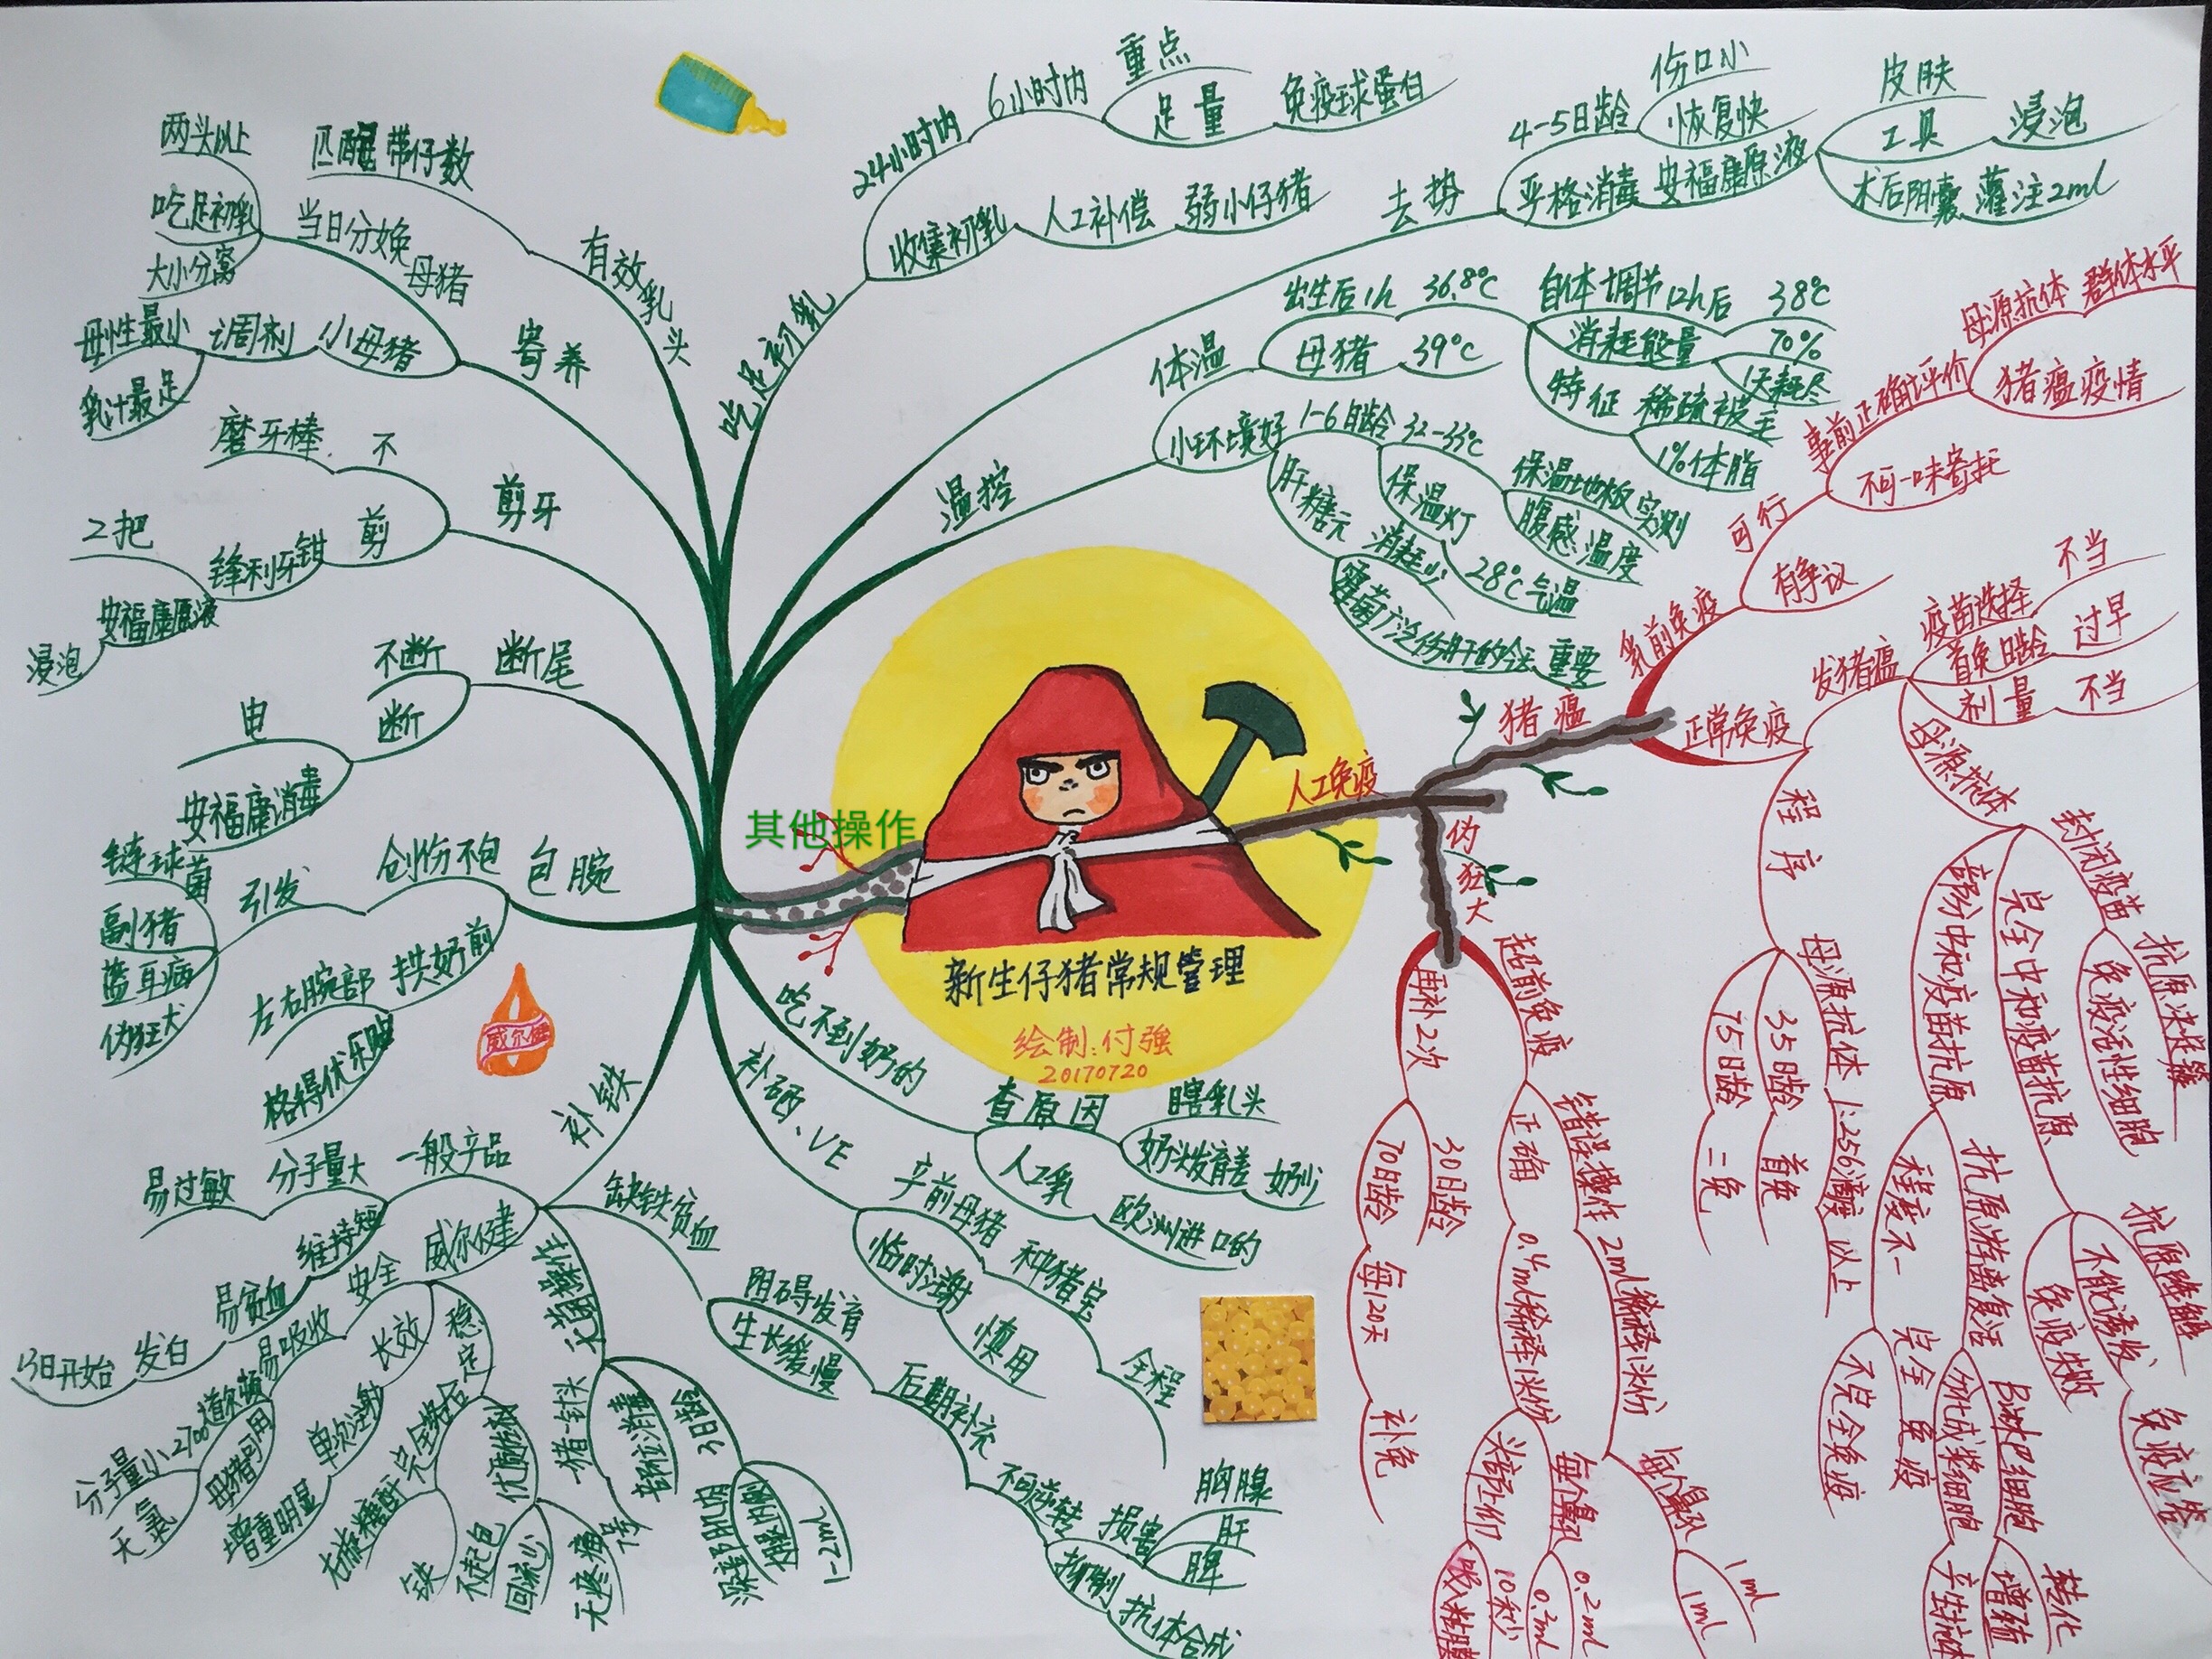 新生仔猪常规管理
绘制:付強
20170720
其他操作
吃足初乳
24小时内
6小时内
重点
足量
免疫球蛋白
收集初乳
人工补偿
弱小仔猪
去势
4-5日龄
伤口小
恢复快
严格消毒
安福康原液
皮肤
工具
浸泡
术后阴囊
灌注2ml
温控
体温
出生后1h
36.8℃
自体调节12h后
38℃
母猪
39℃
消耗能量
70%
1天耗尽
特征
稀疏被毛
1%体脂
小环境好
1-6日龄
32-33℃
保温灯
保温地板实测
腹感温度
28℃气温
肝糖元
消耗少
霉菌广泛伤肝的今天
重要
有效乳头
匹配带仔数
寄养
当日分娩
母猪
两头以上
吃足初乳
大小分窝
小母猪
调剂
母性最小
乳汁最足
剪牙
不
磨牙棒
剪
锋利牙钳
2把
安福康原液
浸泡
断尾
不断
断
电
安福康消毒
包腕
创伤不包
引发
链球菌
副猪
蓝耳病
伪狂犬
左右腕部
拱奶前
格得优乐贴
威尔健
补铁
一般产品
分子量大
易过敏
维持短
易贫血
发白
13日开始
威尔健
安全
易吸收
分子量小2700道尔顿
无氯
母猪可用
长效
单次注射
增重明显
稳定
完全络合
右旋糖酐
铁
优质体验
不起包
回流少
无疼痛
无菌操作
猪一针头
7号
部位消毒
3日龄
深部肌肉
1-2ml
缺铁贫血
阻碍发育
生长缓慢
后期补充
不可逆转
损害
胸腺
肝
脾
抑制
抗体合成
补硒、VE
产前母猪
种猪宝
全程
临时注射
慎用
吃不到奶的
查原因
瞎乳头
奶水发育差
奶少
人工乳
欧洲进口的
人工免疫
猪瘟
乳前免疫
可行
事前正确评价
母源抗体
群体水平
猪瘟疫情
不可一味寄托
有争议
正常免疫
发猪瘟
疫苗选择
不当
首免日龄
过早
剂量
不当
母源抗体
封闭疫苗
抗原决定簇
免疫活性细胞
完全中和疫苗抗原
抗原接触
不能诱发
免疫应答
免疫失败
部分中和疫苗抗原
抗原游离复活
B淋巴细胞
转化
增殖
分化成浆细胞
产生抗体
程度不一
完全免疫
不完全免疫
程序
母源抗体1:256滴度以上
35日龄
首免
75日龄
二免
伪狂犬
超前免疫
错误操作
2ml稀释1头份
每个鼻孔
1ml
1ml
正确
0.4ml稀释1头份
每个鼻孔
0.2ml
0.2ml
头部上仰
10秒
吸入粘膜
再补2次
30日龄
70日龄
每120天
补免